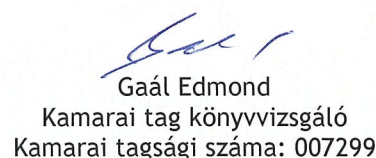 Gaál Edmond
Kamarai tag könyvvizsgáló
Kamarai tagsági száma: 007299